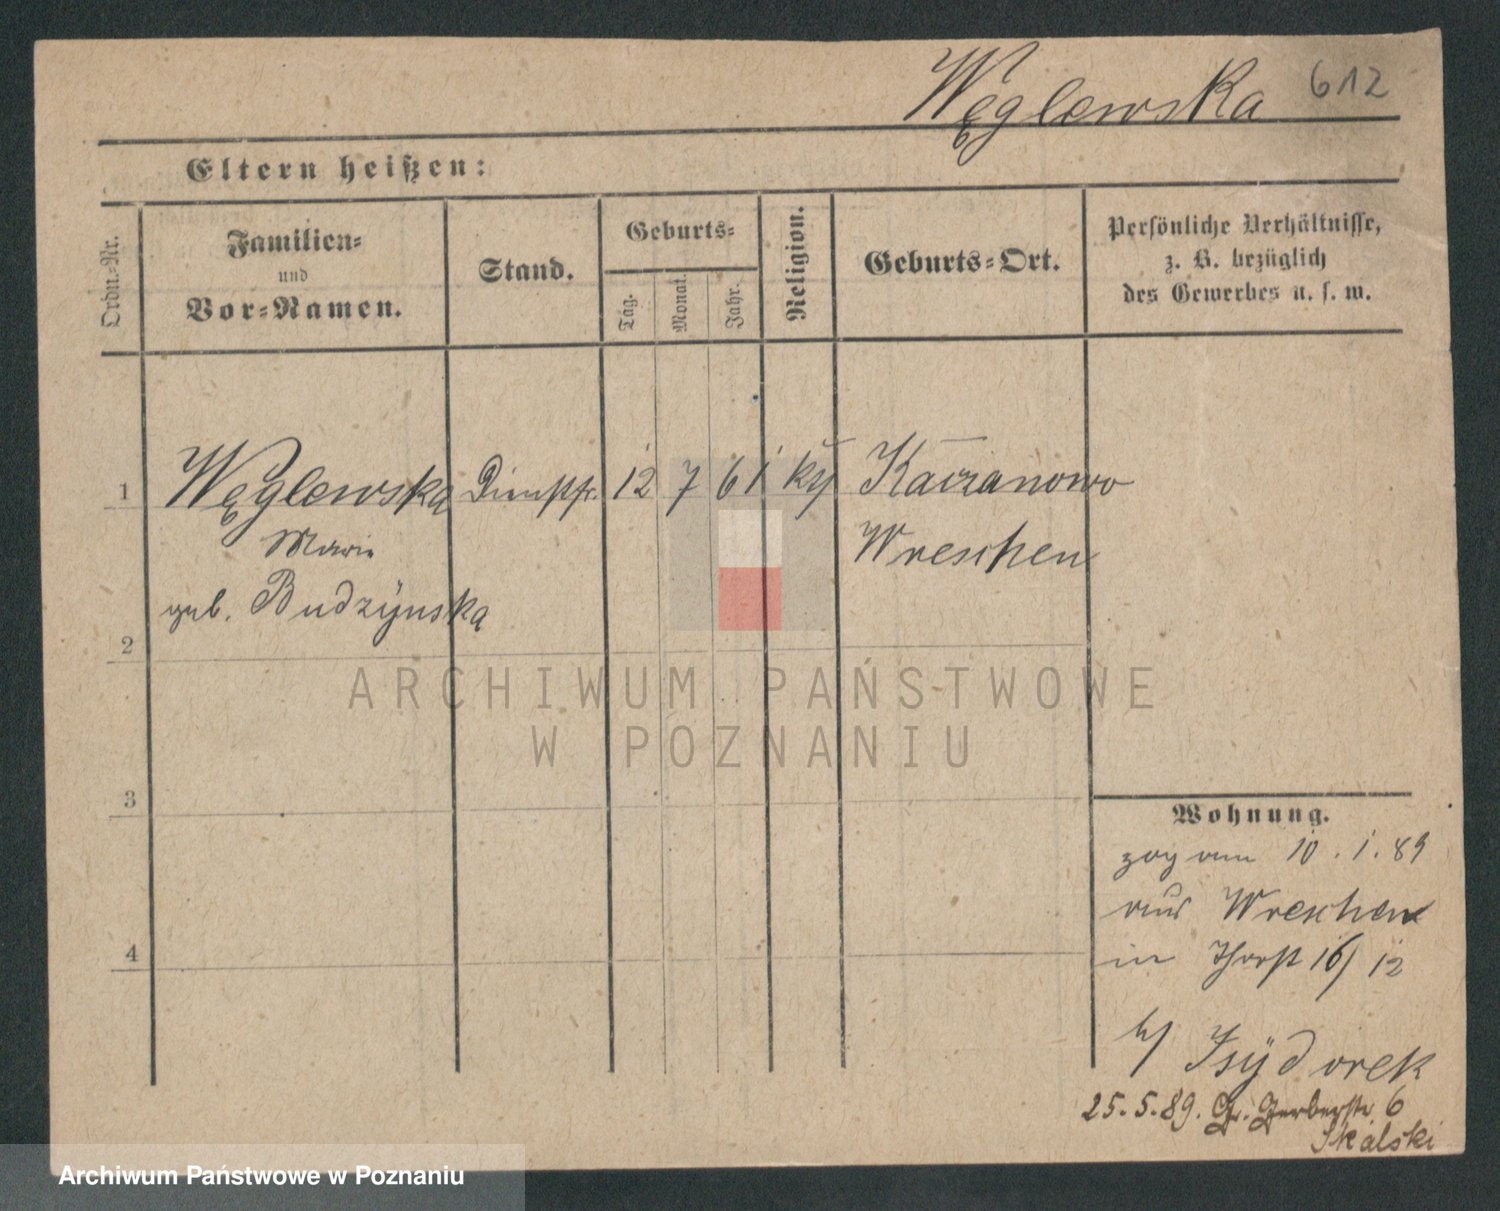 Węglewska 612
Eltern heißen:
Ordn.-Nr.
Familien-
und
Vor-Namen.
Stand.
Geburts-
Tag.
Monat.
Jahr.
Religion.
Geburts-Ort.
Persönliche Verhältnisse,
z. B. bezüglich
des Gewerbes u. s. w.
1 Węglewska 12 7 61 Kaczanowo
Marie Wreschen
geb. Budzÿnska
2
3
4
ARCHIWUM PAŃSTWOWE
W POZNANIU
Wohnung.
zog am 10.1.89
aus Wreschen
in 16/12
b/ Isÿdorek
25.5.89. Gr. Gerberstr 6
Skalski
Archiwum Państwowe w Poznaniu